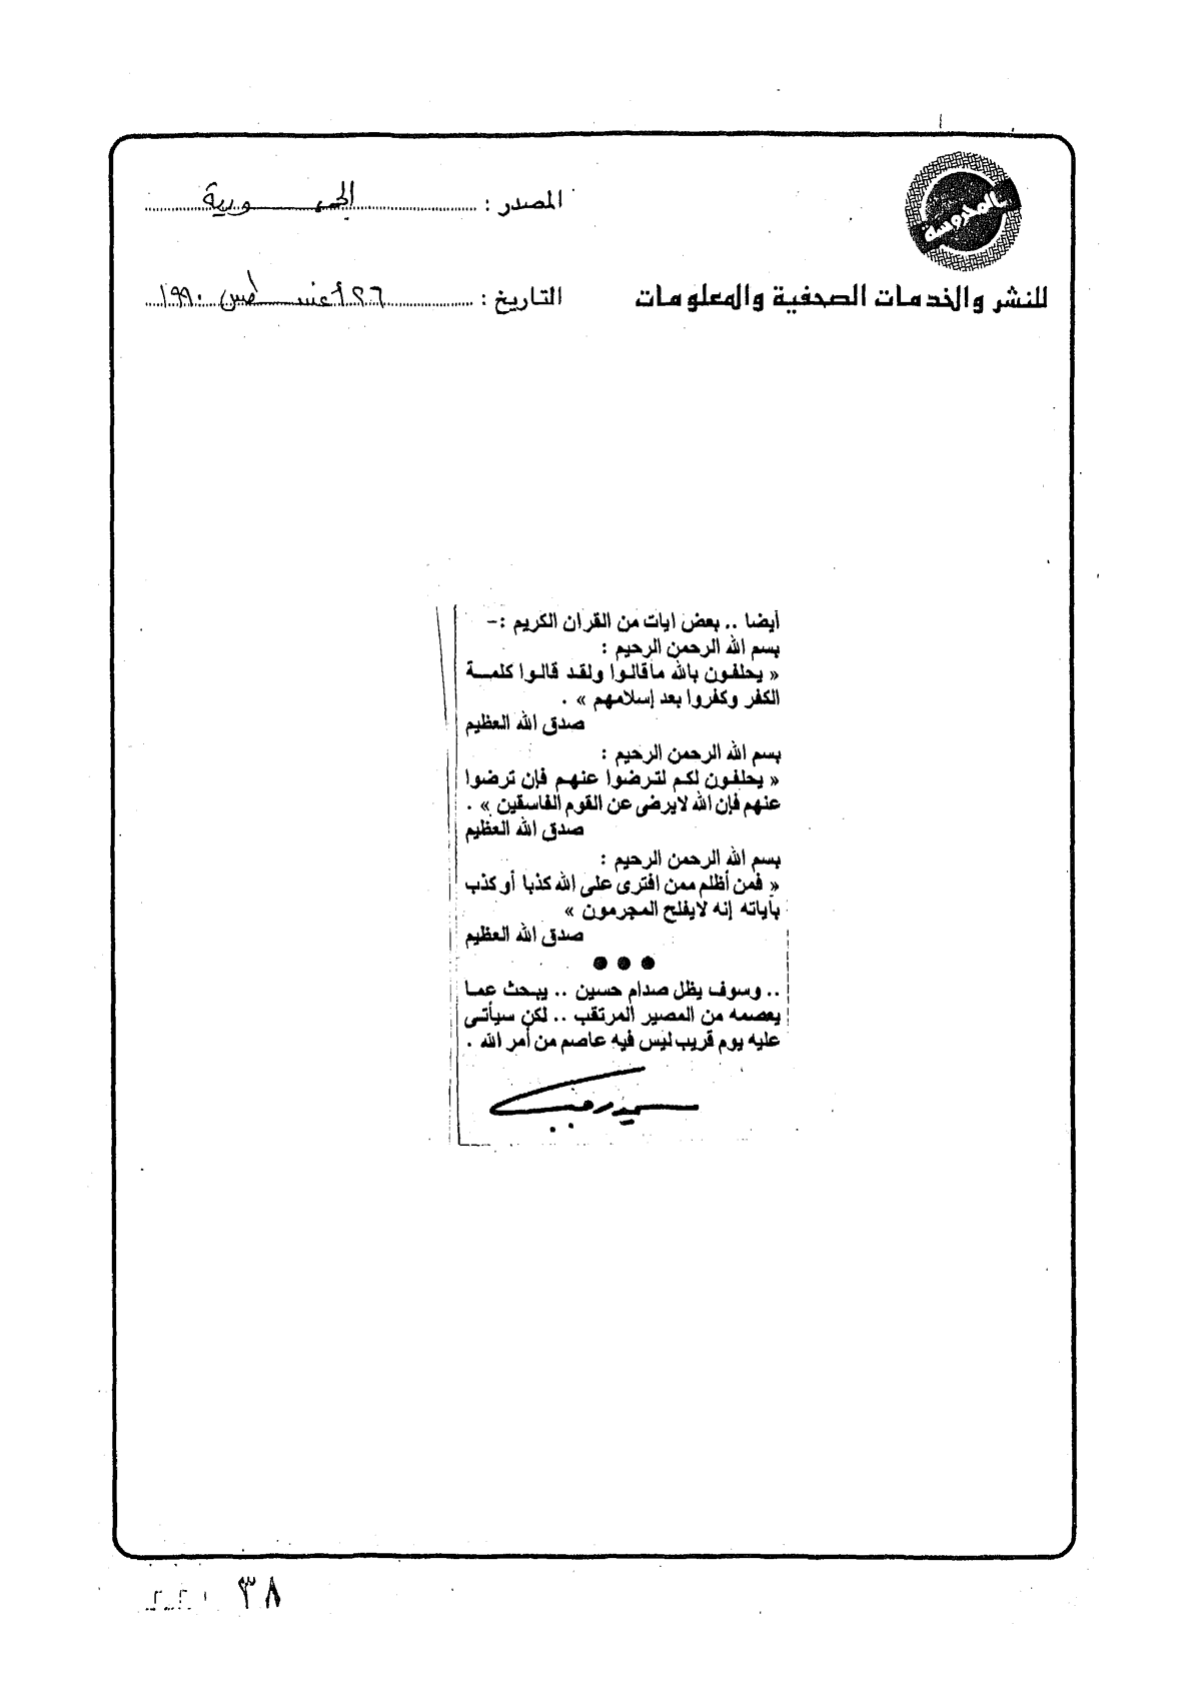 المحروسة
للنشر والخدمات الصحفية والمعلومات
المصدر : الجمهورية
التاريخ : ٢٦ أغسطس ١٩٩٠
أيضا .. بعض ايات من القران الكريم :-
بسم الله الرحمن الرحيم :
« يحلفون بالله ماقالوا ولقد قالوا كلمة
الكفر وكفروا بعد إسلامهم » .
صدق الله العظيم
بسم الله الرحمن الرحيم :
« يحلفون لكم لترضوا عنهم فإن ترضوا
عنهم فإن الله لايرضى عن القوم الفاسقين » .
صدق الله العظيم
بسم الله الرحمن الرحيم :
« فمن أظلم ممن افترى على الله كذبا أو كذب
بآياته إنه لايفلح المجرمون »
صدق الله العظيم
●●●
.. وسوف يظل صدام حسين .. يبحث عما
يعصمه من المصير المرتقب .. لكن سيأتى
عليه يوم قريب ليس فيه عاصم من أمر الله .
سمير رجب
٣٨